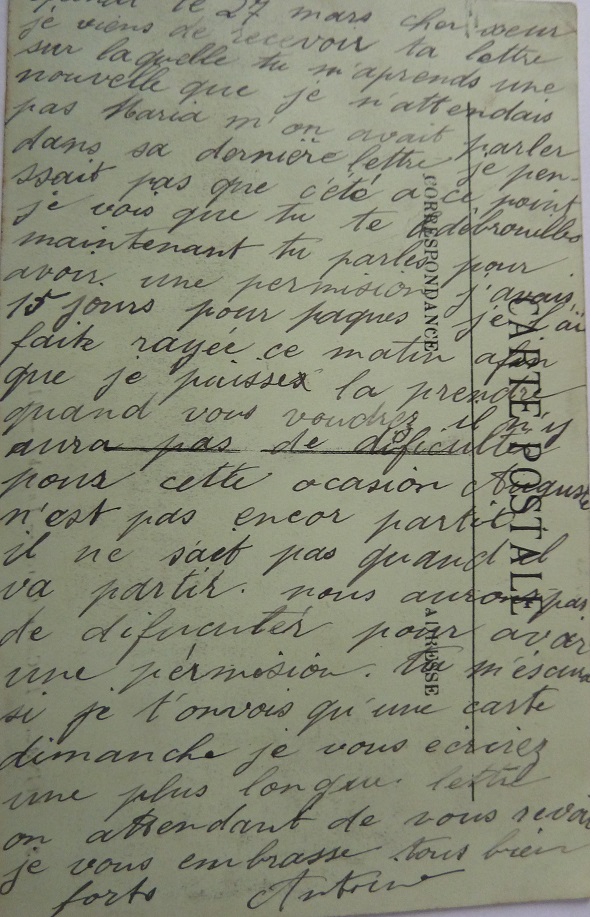 le 27 mars cher sœur
je viens de recevoir ta lettre
sur laquelle tu m'aprends une
nouvelle que je n'attendais
pas Maria m'on avait parler
dans sa dernière lettre je pen-
ssait pas que c'été a ce point
je vois que tu te débrouilles
maintenant tu parles pour
avoir une permision j'avais
15 jours pour paques je l'ai
faite rayée ce matin afin
que je puisses la prendre
quand vous voudrez il n'y
aura pas de dificultée
pour cette ocasion Auguste
n'est pas encor partit
il ne sait pas quand il
va partir. nous auront pas
de dificulter pour avoir
une pérmision. Tu m'éscuse
si je t'onvois qu'une carte
dimanche je vous ecrirez
une plus longue lettre
on attendant de vous revoir
je vous embrasse tous bien
forts Antoine
CARTE POSTALE
CORRESPONDANCE
ADRESSE